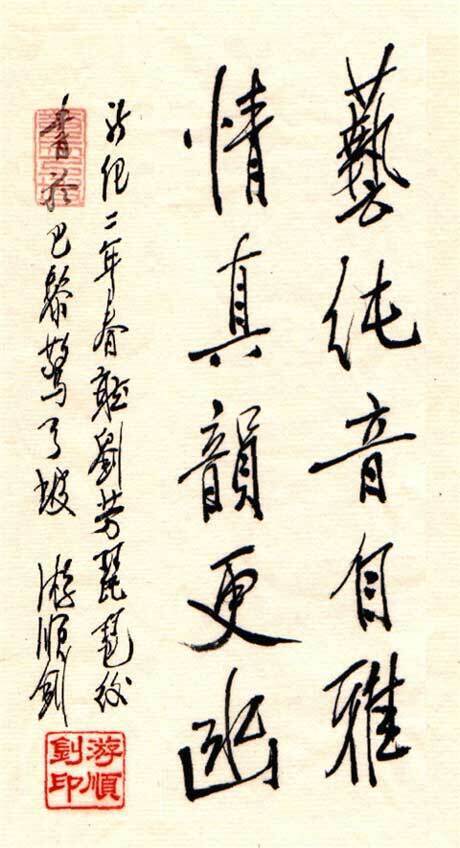 藝純音自雅
情真韻更幽
新紀二年春聽劉芳琵琶後
書於巴黎鶯弓坡 游順釗
游順釗印